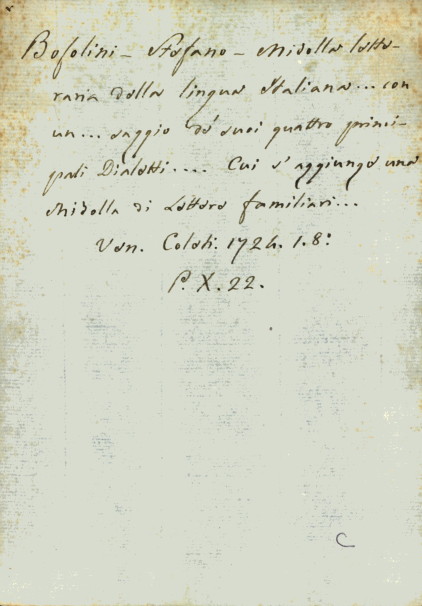 Bosolini - Stefano - Midolla lette-
raria della lingua Italiana... con
un... saggio de' suoi quattro princi-
pali Dialetti.... Cui s' aggiunge una
Midolla di Lettere familiari...
Ven. Coleti. 1724. 1. 8:
P. X. 22.
C